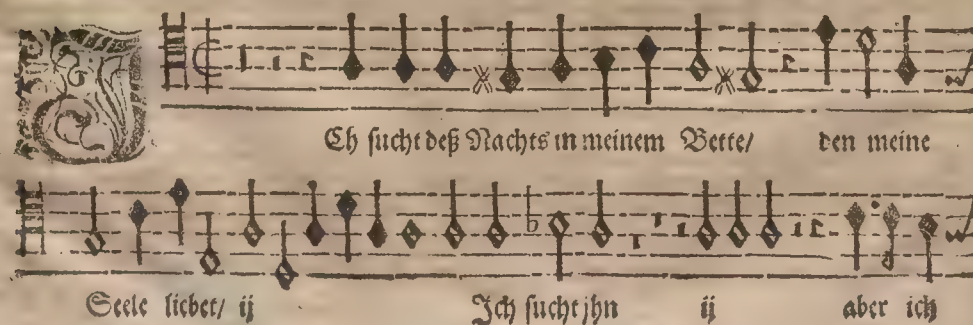 JCh sucht deß Nachts in meinem Bette/ den meine
Seele liebet/ ij Jch sucht jhn ij aber ich